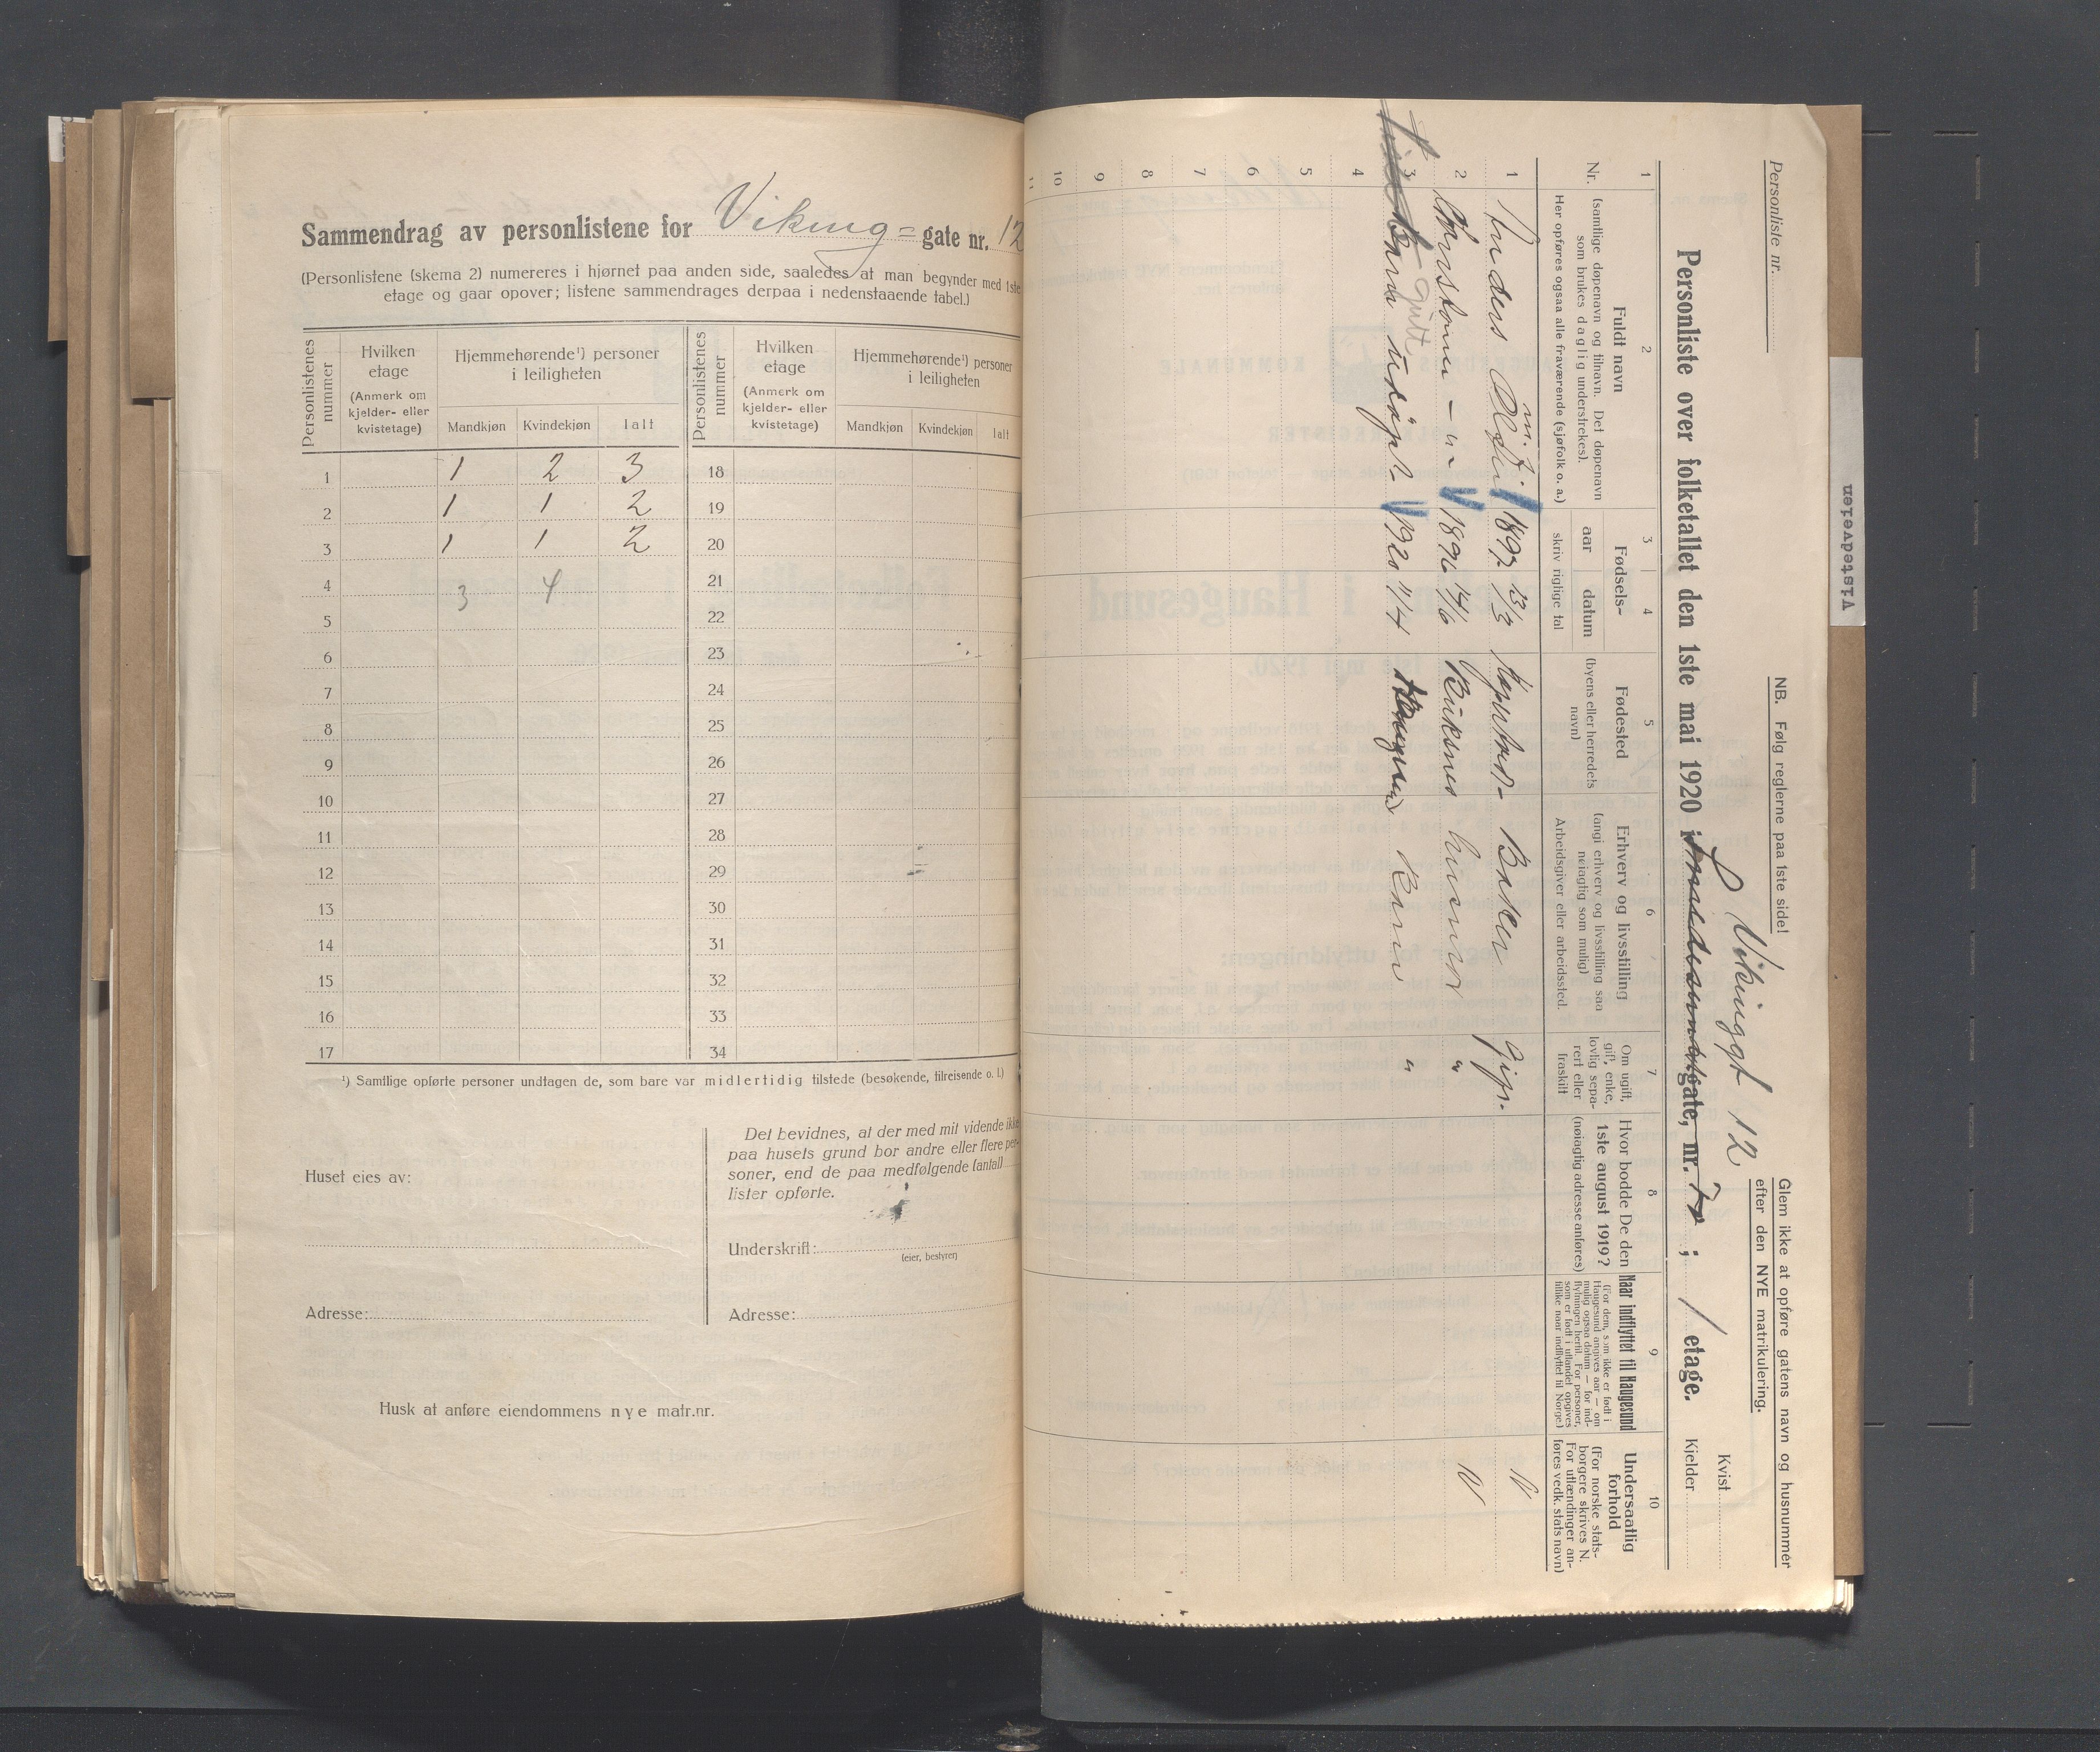 Sammendrag av personlistene for Viking= gate nr. 12
(Personlistene (skema 2) numereres i hjørnet paa anden side, saaledes at man begynder med 1ste
etage og gaar opover; listene sammendrages derpaa i nedenstaaende tabel.)
Personlistenes nummer
Hvilken etage
(Anmerk om kjelder- eller kvistetage)
Hjemmehørende¹) personer i leiligheten
Mandkjøn Kvindekjøn Ialt
Personlistenes nummer
Hvilken etage
(Anmerk om kjelder- eller kvistetage)
Hjemmehørende¹) personer i leiligheten
Mandkjøn Kvindekjøn Ialt
1 1 2 3 18
2 1 1 2 19
3 1 1 2 20
4 3 4 21
5 22
6 23
7 24
8 25
9 26
10 27
11 28
12 29
13 30
14 31
15 32
16 33
17 34
¹) Samtlige opførte personer undtagen de, som bare var midlertidig tilstede (besøkende, tilreisende o. l.)
Huset eies av:
Adresse:
Det bevidnes, at der med mit vidende ikke
paa husets grund bor andre eller flere per-
soner, end de paa medfølgende (antall
lister opførte.
Underskrift:
(eier, bestyrer)
Adresse:
Husk at anføre eiendommens nye matr.nr.
Personliste nr.
NB. Følg reglerne paa 1ste side!
Glem ikke at opføre gatens navn og husnummer
efter den NYE matrikulering.
Vikinggt 12
Kvist
Personliste over folketallet den 1ste mai 1920 i gate, nr. ; 1 etage.
Kjelder
1 2 3 4 5 6 7 8 9 10
Nr.
Fuldt navn
(samtlige døpenavn og tilnavn. Det døpenavn
som brukes daglig understrekes).
Her opføres ogsaa alle fraværende (sjøfolk o. a.)
Fødsels-
aar datum
skriv riglige tal
Fødested
(byens eller herredets
navn)
Erhverv og livsstilling
(angi erhverv og livsstilling saa
nøiagtig som mulig)
Arbeidsgiver eller arbeidssted.
Om ugift,
gift, enke,
lovlig sepa-
rert eller
fraskilt
Hvor bodde De den
1ste august 1919?
(nøiagtig adresse anføres)
Naar indflyttet til Haugesund
(For dem, som ikke er født i
Haugesund angives aar — om
mulig ogsaa datum — for ind-
flytningen hertil. For personer,
som er født i utlandet opgives
tillike naar indflyttet til Norge.)
Undersaatlig
forhold
(For norske stats-
borgere skrives N.
For utlændinger an-
føres vedk. stats navn)
1 Anders 1892 13/3 Baker gift. N
2 1896 14/6 Buksnes husmor " N
3 Barn udøpt 1920 11/4 Barn "
Gutt
4
5
6
7
8
9
10
11
Vistedveten